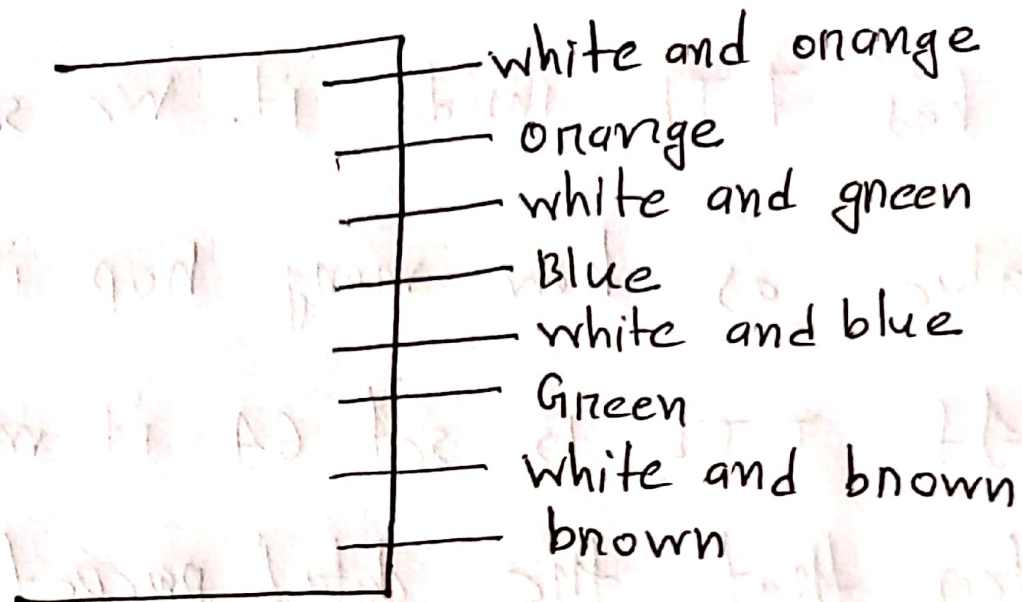 white and orange
orange
white and green
Blue
white and blue
Green
white and brown
brown